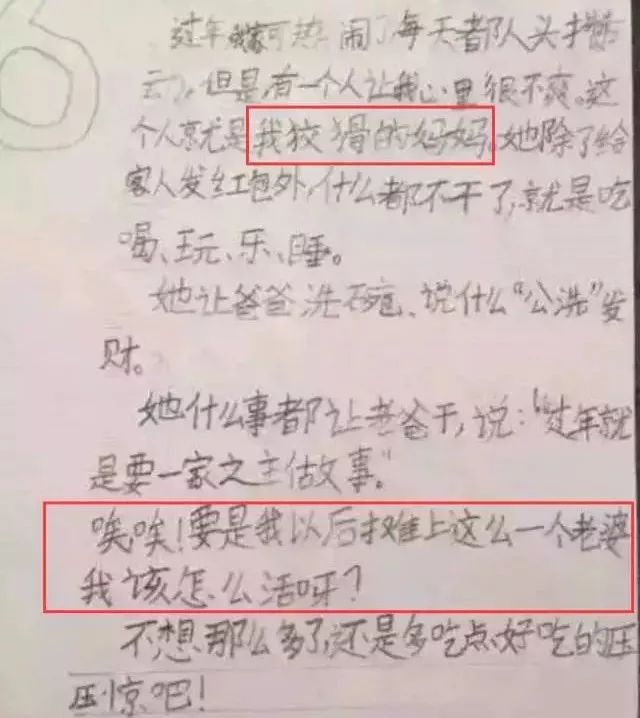 过年我家可热闹了每天都人头攒
动,但是,有一个人让我心里很不爽。这
个人就是我狡猾的妈妈。她除了给
客人发红包外,什么都不干了,就是吃
喝、玩、乐、睡。
她让爸爸洗碗、说什么“公洗”发
财。
她什么事都让老爸干,说:“过年就
是要一家之主估故事。”
唉唉!要是我以后摊上这么一个老婆
我该怎么活呀?
不想那么多了,还是多吃点好吃的压
压惊吧!